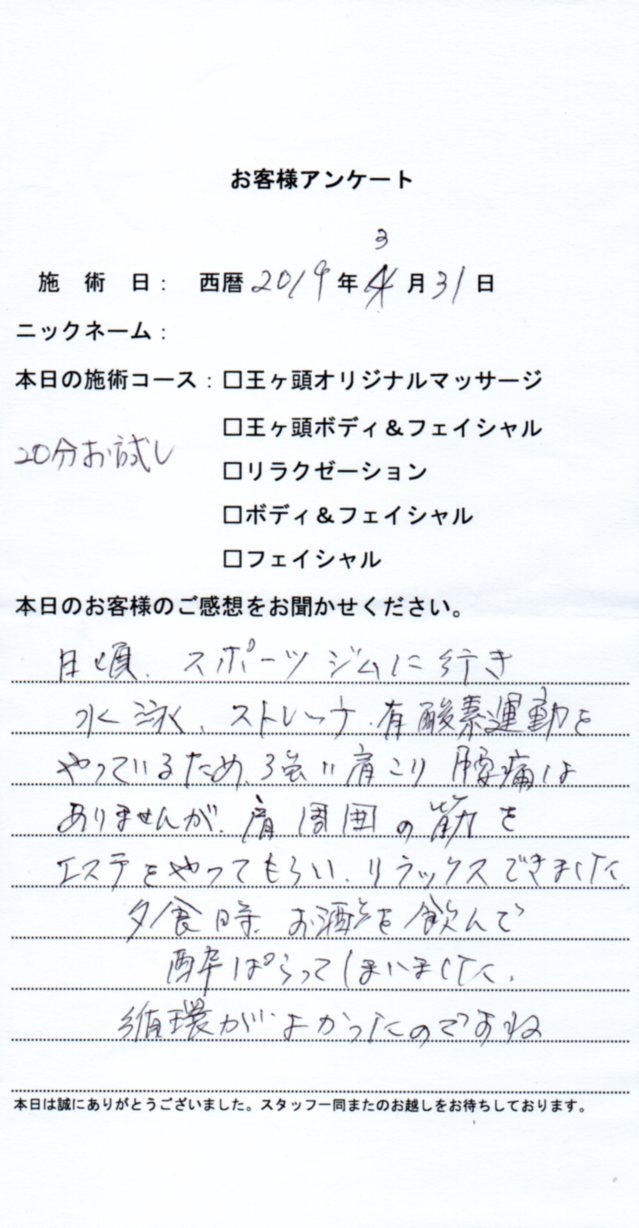 お客様アンケート
3
施術日： 西暦2019年4月31日
ニックネーム：
本日の施術コース：□王ヶ頭オリジナルマッサージ
□王ヶ頭ボディ＆フェイシャル
20分お試し
□リラクゼーション
□ボディ＆フェイシャル
□フェイシャル
本日のお客様のご感想をお聞かせください。
日頃、スポーツジムに行き
水泳、ストレッチ、有酸素運動を
やっているため、強い肩こり腰痛は
ありませんが、肩周囲の筋を
エステをやってもらい、リラックスできました
夕食時お酒を飲んで
酔ぱらってしまいました、
循環がよかったのですね
本日は誠にありがとうございました。スタッフ一同またのお越しをお待ちしております。